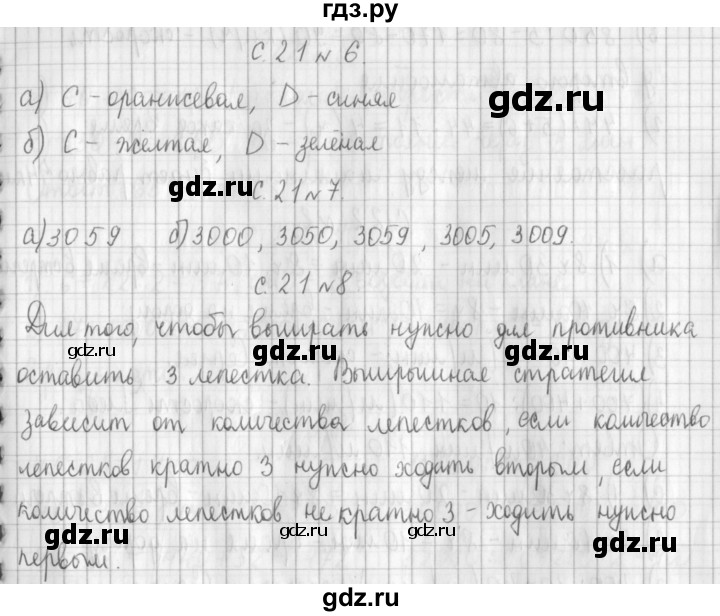 гдз.ру
с. 21 № 6.
а) С - оранжевая, D - синяя
gdz.ru
б) С - жёлтая, D - зелёная
gdz.ru
с. 21 № 7.
а) 3059 б) 3000, 3050, 3059, 3005, 3009.
с. 21 № 8
gdz.ru
Для того, чтобы выиграть нужно для противника
gdz.ru gdz.ru
оставить 3 лепестка. Выигрышная стратегия
зависит от количества лепестков, если количество
gdz.ru
лепестков кратно 3 нужно ходить вторым, если
gdz.ru
количество лепестков не кратно 3 - ходить нужно
gdz.ru gdz.ru
первым.
gdz.ru